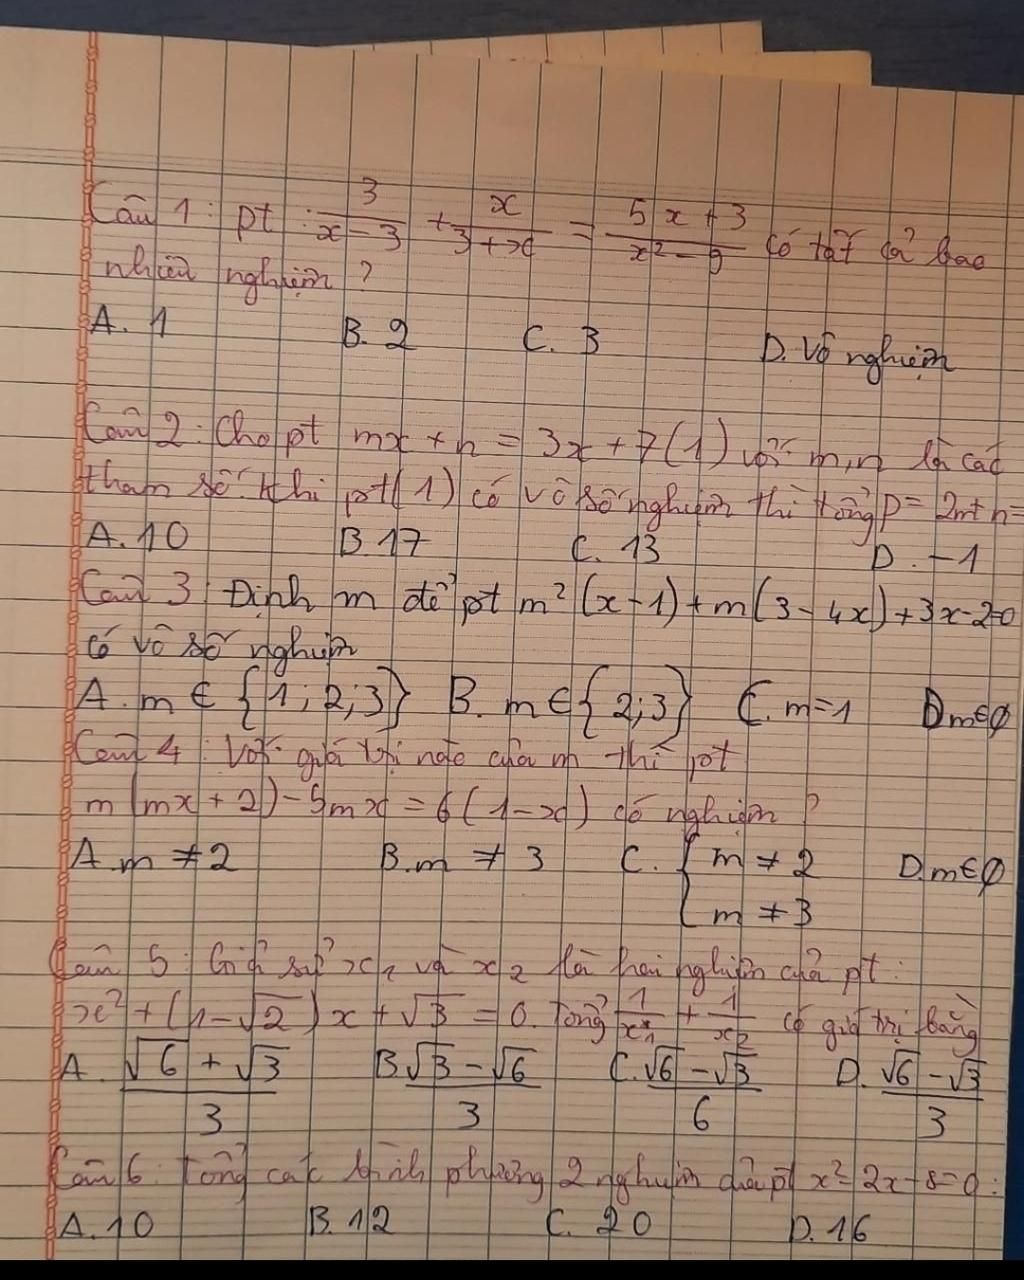 Câu 1: pt: \frac{3}{x-3} + \frac{x}{3+x} = \frac{5x+3}{x²-9} có tất cả bao
nhiêu nghiệm?
A. 1 B. 2 C. 3 D. Vô nghiệm
Câu 2: Cho pt mx + n = 3x + 7 (1) với m, n là các
tham số. Khi pt (1) có vô số nghiệm thì tổng P = 2m + n =
A. 10 B. 17 C. 13 D. -1
Câu 3: Định m để pt m² (x-1) + m(3-4x) + 3x-2=0
có vô số nghiệm
A. m ∈ {1; 2; 3} B. m ∈ {2; 3} C. m = 1 D m ∈ ∅
Câu 4: Với giá trị nào của m thì pt
m(mx + 2) - 5mx = 6(1-x) có nghiệm?
A. m ≠ 2 B. m ≠ 3 C. { m ≠ 2 D. m ∈ ∅
m ≠ 3
Câu 5: Giả sử x₁ và x₂ là hai nghiệm của pt:
x² + (1-√2)x + √3 = 0. Tổng \frac{1}{x₁} + \frac{1}{x₂} có giá trị bằng
A. \frac{√6 + √3}{3} B. \frac{√3 - √6}{3} C. \frac{√6 - √3}{6} D. \frac{√6 - √3}{3}
Câu 6: Tổng các bình phương 2 nghiệm của pt x²-2x-8=0:
A. 10 B. 12 C. 20 D. 16